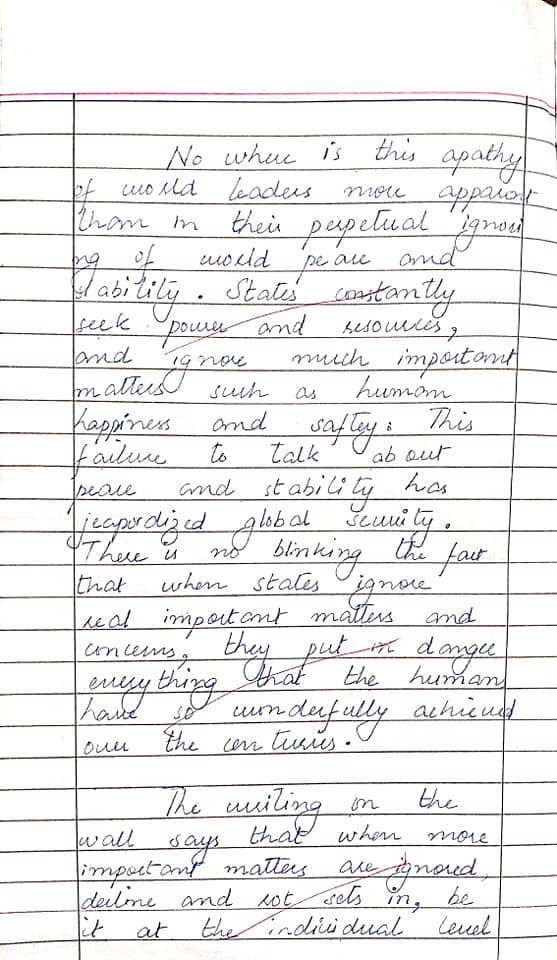 No where is this apathy
of world leaders more apparant
than in their perpetual ignori
ng of world peace and
stability. States constantly
seek power and resources,
and ignore much important
matters such as human
happiness and saftey. This
failure to talk about
peace and stability has
jeapordized global security.
There is no blinking the fact
that when states ignore
real important matters and
concerns, they put in danger
everything that the human
have so wonderfully achieved
over the centuries.
The writing on the
wall says that when more
important matters are ignored,
decline and rot sets in, be
it at the individual level